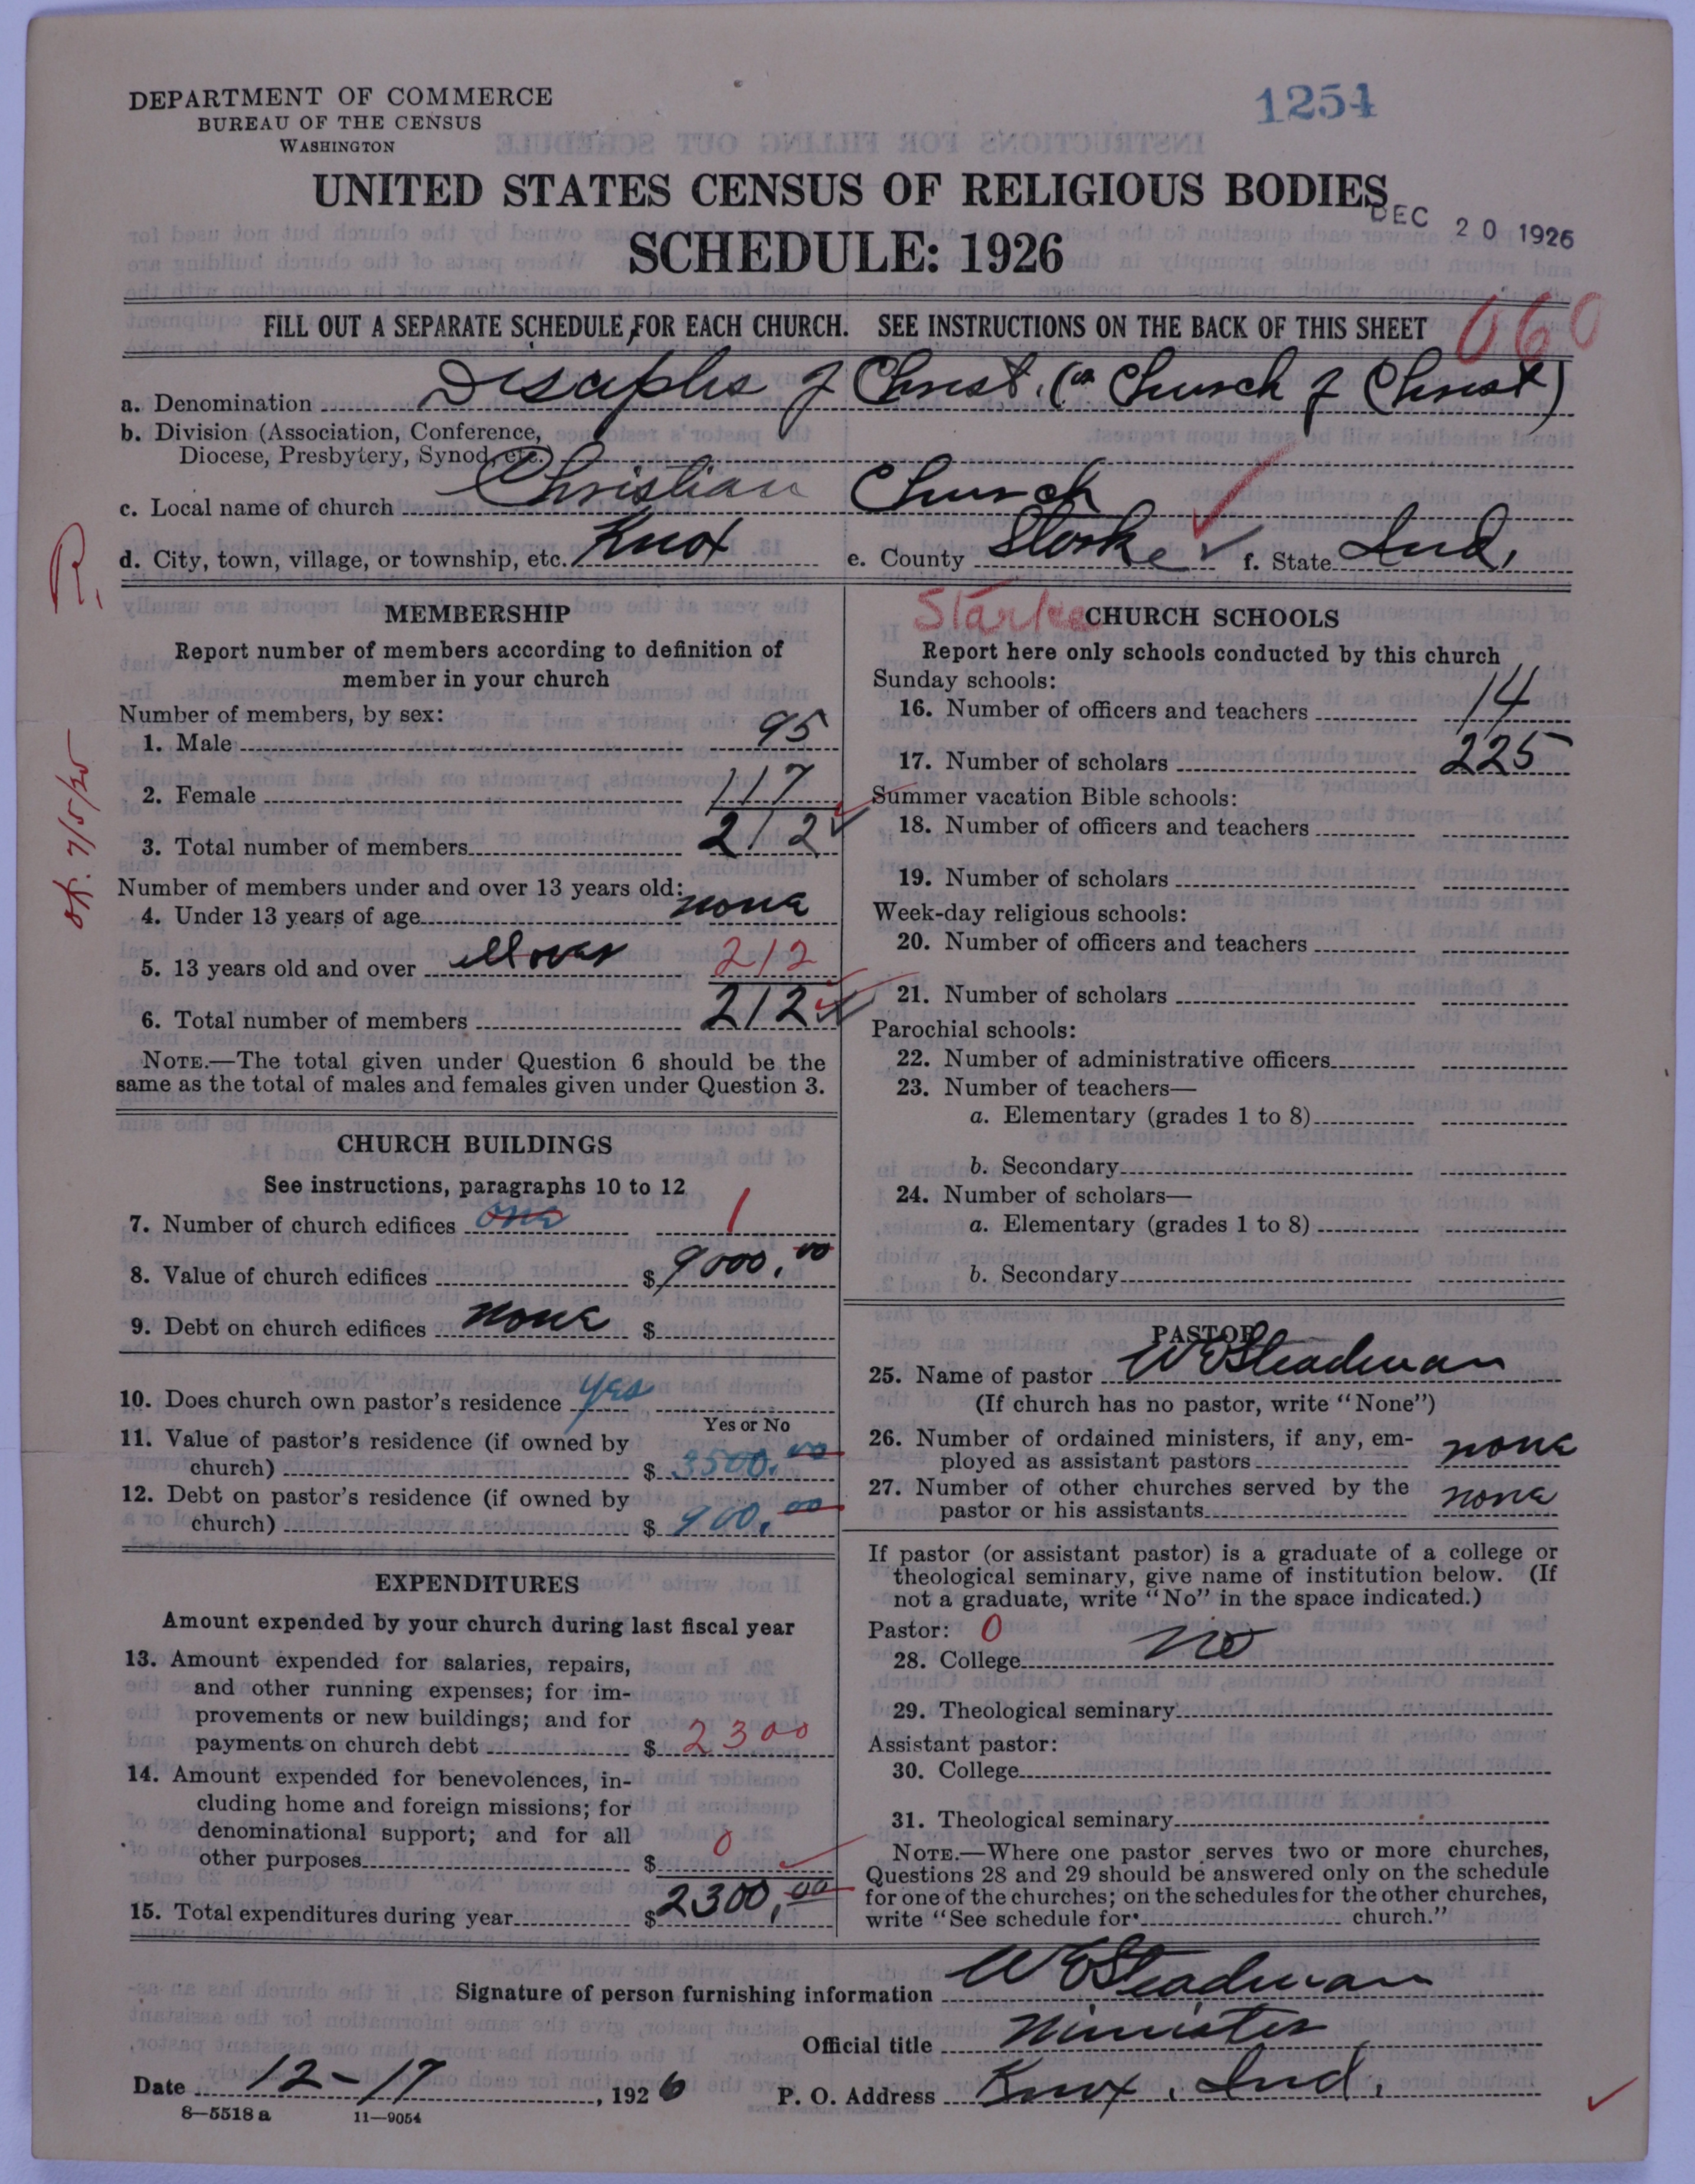 DEPARTMENT OF COMMERCE
BUREAU OF THE CENSUS
WASHINGTON
1254
UNITED STATES CENSUS OF RELIGIOUS BODIES
DEC 20 1926
SCHEDULE: 1926
FILL OUT A SEPARATE SCHEDULE FOR EACH CHURCH. SEE INSTRUCTIONS ON THE BACK OF THIS SHEET
060
a. Denomination Disciples of Christ. (or Church of Christ)
b. Division (Association, Conference,
Diocese, Presbytery, Synod, etc.)
c. Local name of church Christian Church
d. City, town, village, or township, etc. Knox e. County Starke f. State Ind.
R.
ok. 7/5/25
MEMBERSHIP
Report number of members according to definition of
member in your church
Number of members, by sex:
1. Male 95
2. Female 117
3. Total number of members 212
Number of members under and over 13 years old:
4. Under 13 years of age none
5. 13 years old and over 212
6. Total number of members 212
NOTE.—The total given under Question 6 should be the
same as the total of males and females given under Question 3.
CHURCH BUILDINGS
See instructions, paragraphs 10 to 12
7. Number of church edifices one 1
8. Value of church edifices $ 9000.00
9. Debt on church edifices none $
10. Does church own pastor's residence yes
Yes or No
11. Value of pastor's residence (if owned by
church) $ 3500.00
12. Debt on pastor's residence (if owned by
church) $ 900.00
EXPENDITURES
Amount expended by your church during last fiscal year
13. Amount expended for salaries, repairs,
and other running expenses; for im-
provements or new buildings; and for
payments on church debt $ 2300
14. Amount expended for benevolences, in-
cluding home and foreign missions; for
denominational support; and for all
other purposes $ 0
15. Total expenditures during year $ 2300.00
Starke
CHURCH SCHOOLS
Report here only schools conducted by this church
Sunday schools:
16. Number of officers and teachers 14
17. Number of scholars 225
Summer vacation Bible schools:
18. Number of officers and teachers
19. Number of scholars
Week-day religious schools:
20. Number of officers and teachers
21. Number of scholars
Parochial schools:
22. Number of administrative officers
23. Number of teachers—
a. Elementary (grades 1 to 8)
b. Secondary
24. Number of scholars—
a. Elementary (grades 1 to 8)
b. Secondary
PASTOR
25. Name of pastor W E Steadman
(If church has no pastor, write "None")
26. Number of ordained ministers, if any, em-
ployed as assistant pastors none
27. Number of other churches served by the
pastor or his assistants none
If pastor (or assistant pastor) is a graduate of a college or
theological seminary, give name of institution below. (If
not a graduate, write "No" in the space indicated.)
Pastor: 0
28. College no
29. Theological seminary
Assistant pastor:
30. College
31. Theological seminary
NOTE.—Where one pastor serves two or more churches,
Questions 28 and 29 should be answered only on the schedule
for one of the churches; on the schedules for the other churches,
write "See schedule for church."
Signature of person furnishing information W E Steadman
Official title Minister
Date 12-17, 1926 P. O. Address Knox, Ind.
8—5518 a 11—9054